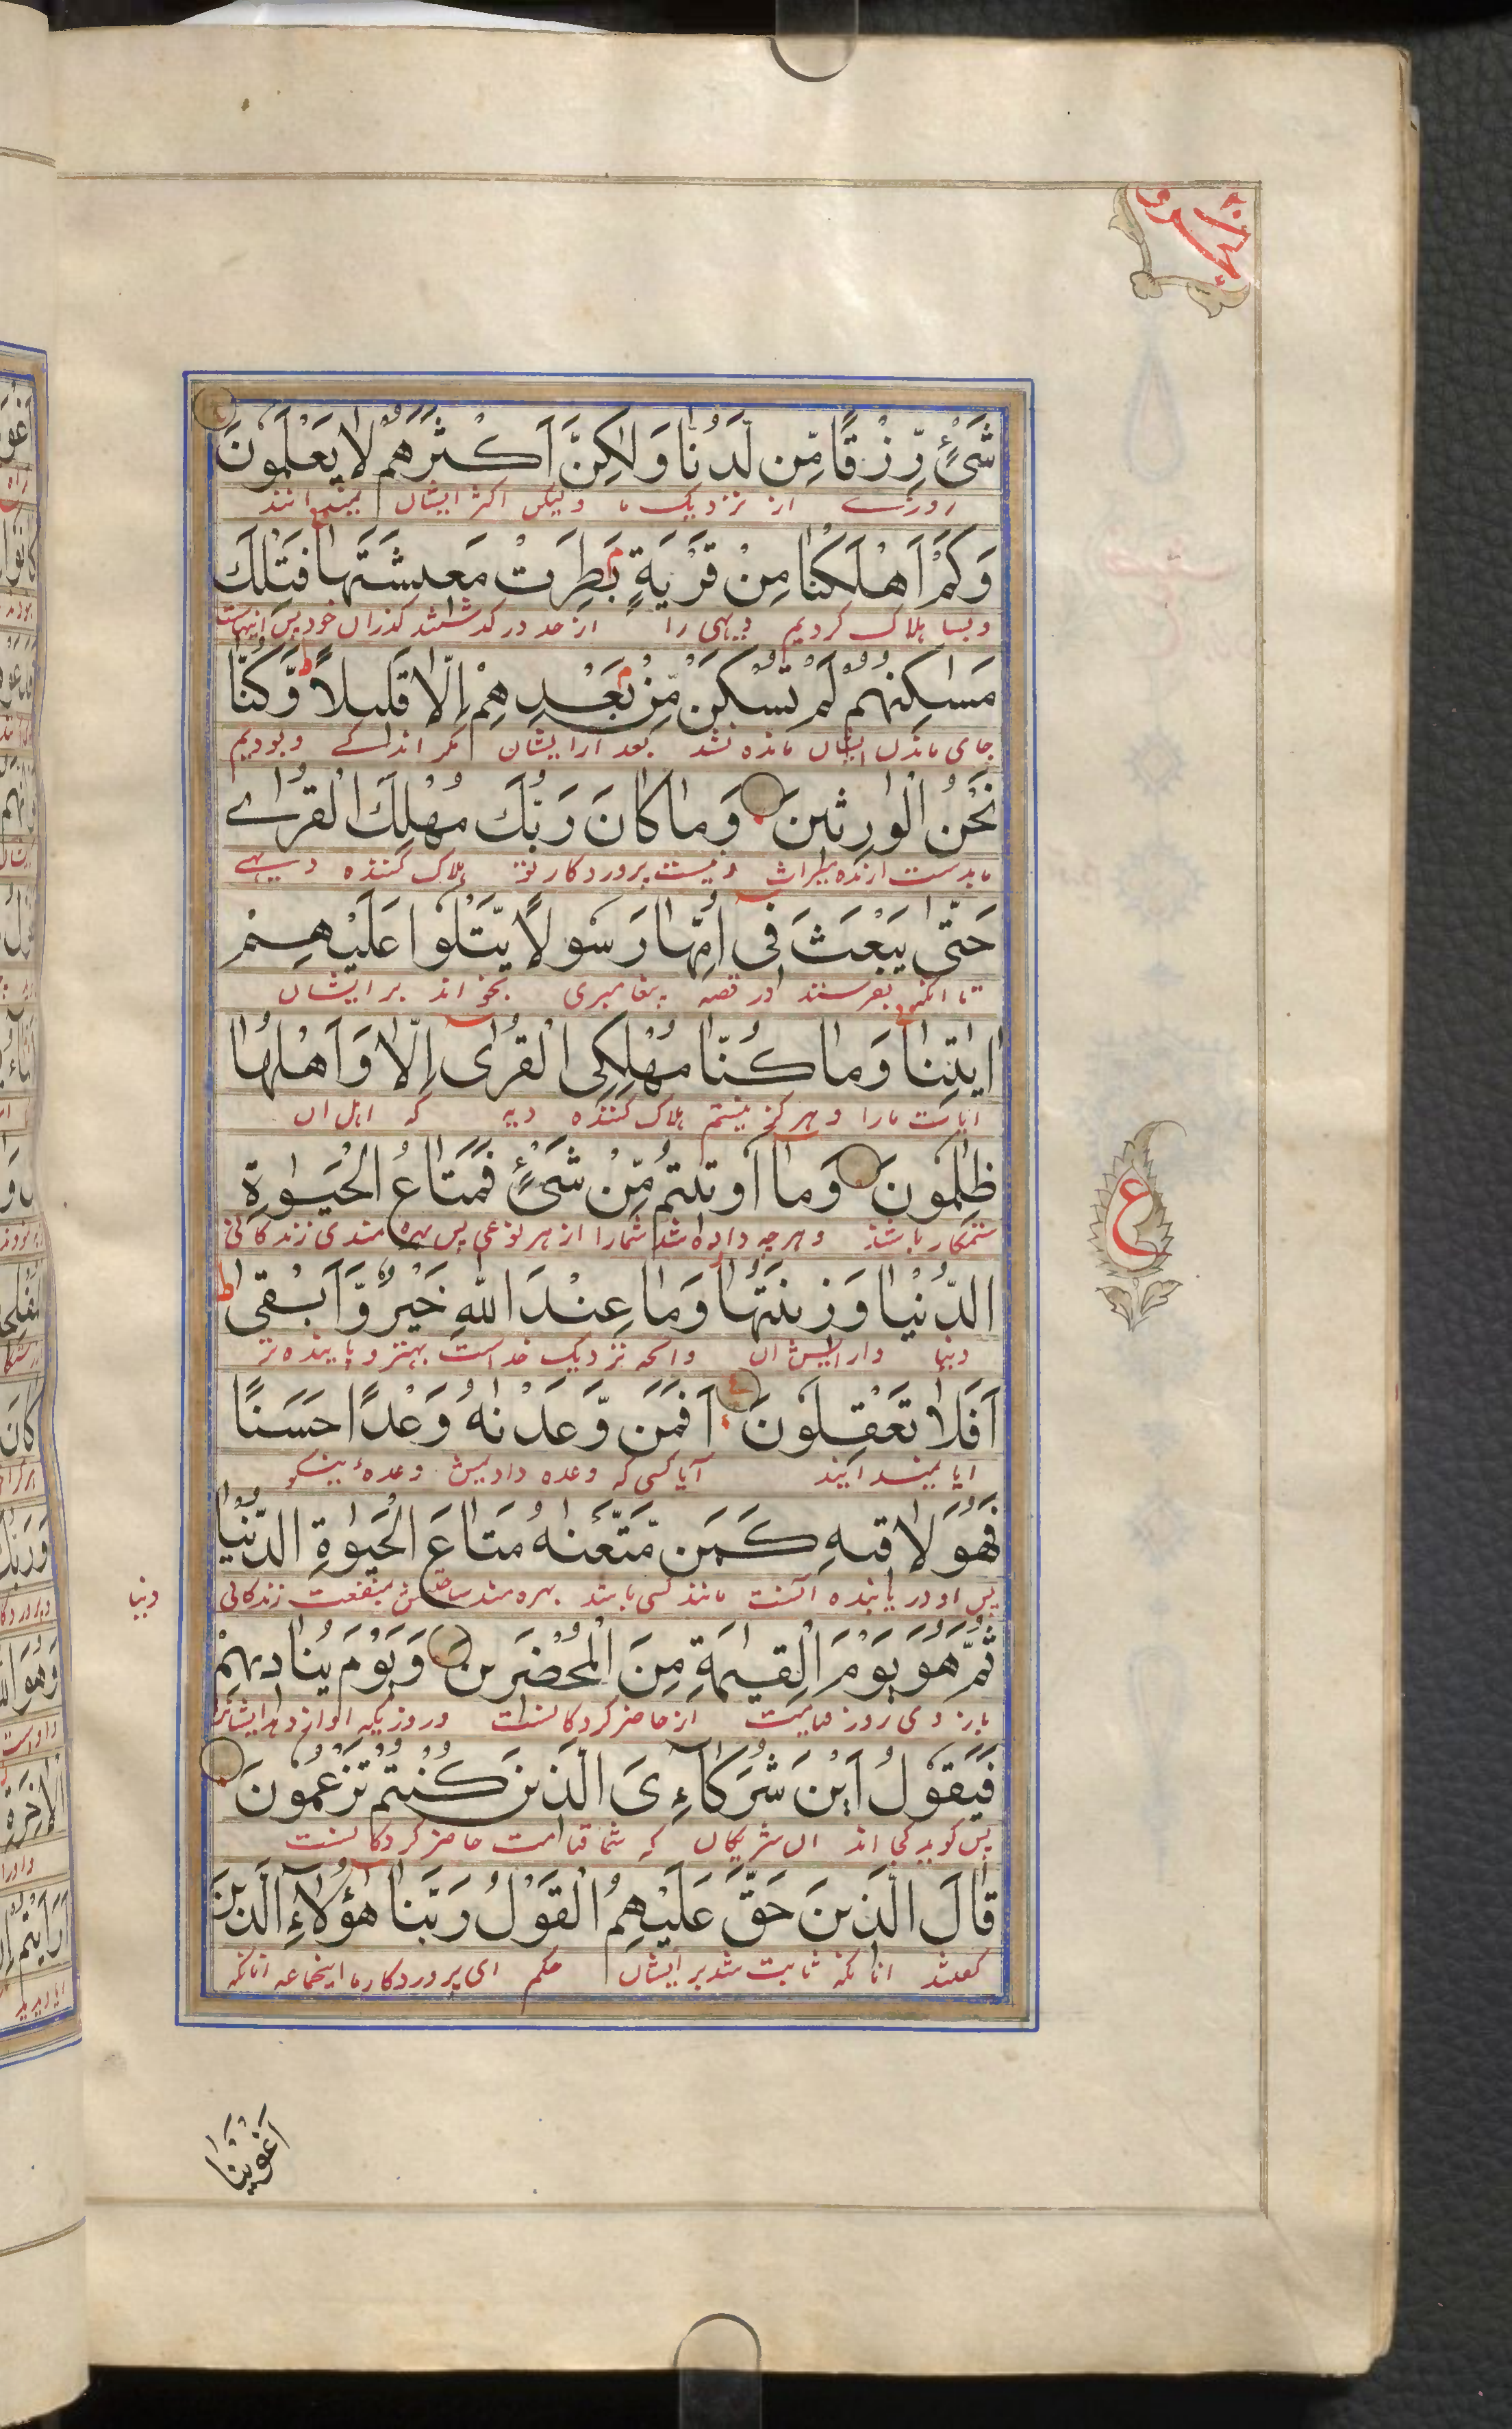 شَیْءٍ رِّزْقًا مِّن لَّدُنَّا وَلٰکِنَّ اَکْثَرَهُمْ لَا یَعْلَمُونَ
روزی از نزدیک ما ولیکن اکثر ایشان نمیدانند
وَکَمْ اَهْلَکْنَا مِنْ قَرْیَةٍ بَطِرَتْ مَعِیشَتَهَا فَتِلْكَ
و بسا هلاک کردیم دیهی را از حد در گذشتند گذران خود پس اینهاست
مَسَاکِنُهُمْ لَمْ تُسْکَنْ مِّنْ بَعْدِهِمْ اِلَّا قَلِیلًا وَّکُنَّا
جای ماندن ایشان مانده نشد بعد از ایشان مگر اندکے و بودیم
نَحْنُ الْوَارِثِینَ وَمَا کَانَ رَبُّكَ مُهْلِكَ الْقُرٰے
میراث و نیست پروردگار تو هلاک کننده دیهے
حَتّٰی یَبْعَثَ فِی اُمِّهَا رَسُولًا یَّتْلُوا عَلَیْهِمْ
تا آنکه بفرستند در قصبه پیغامبری بخواند بر ایشان
اٰیٰتِنَا وَمَا کُنَّا مُهْلِکِی الْقُرٰی اِلَّا وَاَهْلُهَا
آیات مارا و هرگز نیستم هلاک کننده دیه که اهل آن
ظٰلِمُونَ وَمَا اُوتِیتُمْ مِّنْ شَیْءٍ فَمَتَاعُ الْحَیٰوةِ
ستمکار باشند و هرچه داده شد شمارا از هر نوعی پس بهره مندی زندگانی
الدُّنْیَا وَزِینَتُهَا وَمَا عِنْدَ اللّٰهِ خَیْرٌ وَّاَبْقٰی
دنیا و آرایش آن و آنچه نزدیک خداست بهتر و پاینده تر
اَفَلَا تَعْقِلُونَ اَفَمَنْ وَّعَدْنٰهُ وَعْدًا حَسَنًا
آیا آیا کسی که وعده دادیمش وعدهٔ نیکو
فَهُوَ لَاقِیهِ کَمَنْ مَّتَّعْنٰهُ مَتَاعَ الْحَیٰوةِ الدُّنْیَا
پس او دریابنده آنست مانند کسی باشد بهره مند ساختمش منفعت زندگانی
دنیا
ثُمَّ هُوَ یَوْمَ الْقِیٰمَةِ مِنَ الْمُحْضَرِینَ وَیَوْمَ یُنَادِیهِمْ
باز وی روز قیامت از حاضر کردگانست و روزیکه آواز دهد ایشانرا
فَیَقُولُ اَیْنَ شُرَکَآءِیَ الَّذِینَ کُنْتُمْ تَزْعُمُونَ
پس گوید کجا اند آن شریکان که شما قیامت حاضر کردگانست
قَالَ الَّذِینَ حَقَّ عَلَیْهِمُ الْقَوْلُ رَبَّنَا هٰؤُلَآءِ الَّذِینَ
گفتند آنانکه ثابت شد بر ایشان حکم ای پروردگار ما اینجماعه آنانکه
ع
اَغْوَیْنَا